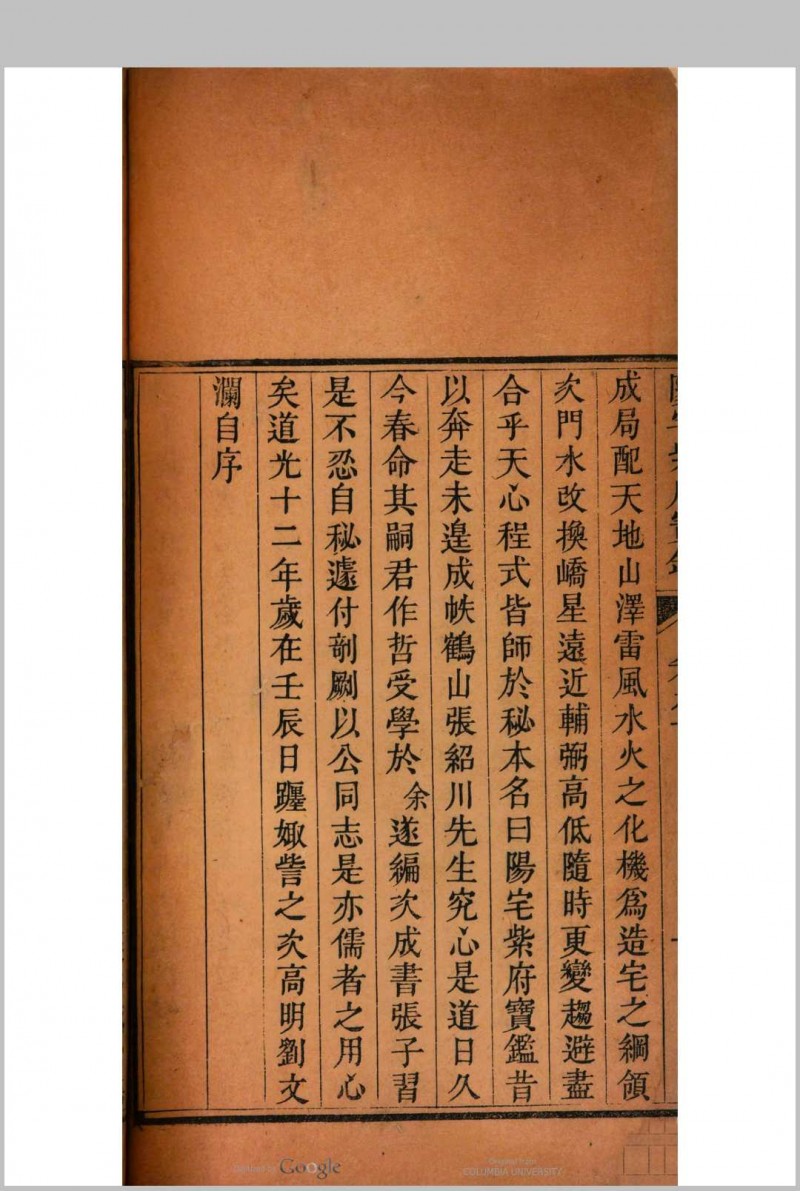 成局配天地山澤雷風水火之化機爲造宅之綱領
次門水改換嶠星遠近輔弼高低隨時更變趨避盡
合乎天心程式皆師於秘本名曰陽宅紫府寶鑑昔
以奔走未遑成帙鶴山張紹川先生究心是道日久
今春命其嗣君作哲受學於余遂編次成書張子習
是不忍自秘遽付剞劂以公同志是亦儒者之用心
矣道光十二年歲在壬辰日躔娵訾之次高明劉文
瀾自序
Google
COLUMBIA UNIVERSITY